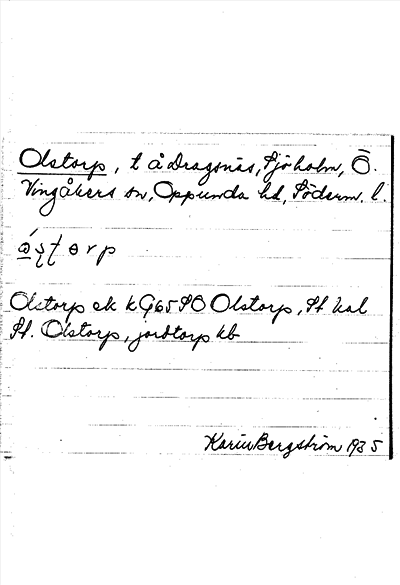 Olstorp, t å Dragsnäs, Sjöholm, Ö.
Vingåkers sn, Oppunda hd, Söderm. l.
Olstorp ek kG65SO Olstorp, St kal
St. Olstorp, jordtorp kb
Karin Bergström 1935